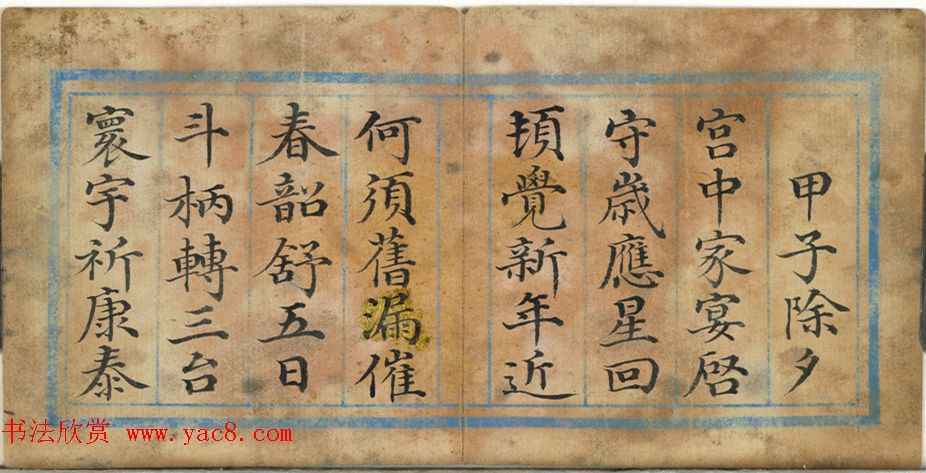 甲子除夕
宫中家宴啓
守歳應星回
頓覺新年近
何須舊漏催
春韶舒五日
斗柄轉三台
寰宇祈康泰
书法欣赏 www.yac8.com